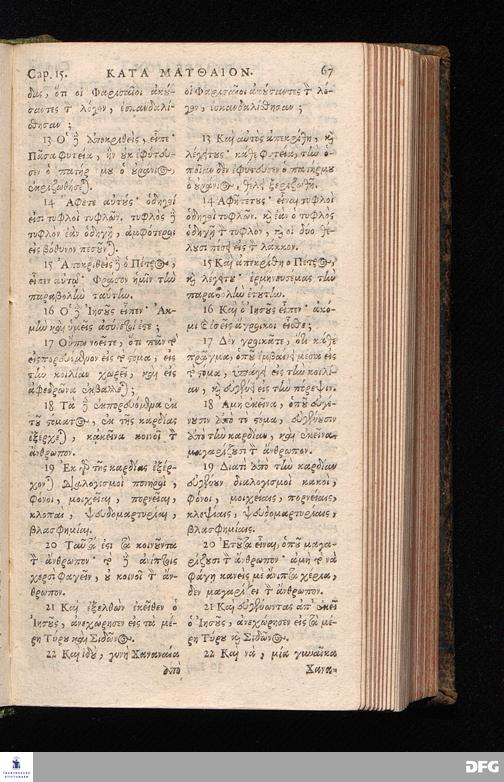 Cap. 15. ΚΑΤΑ ΜΑΤΘΑΙΟΝ. 67
δας, ὅτι οἱ Φαρισαῖοι ἀκού-
σαντες τ λόγον, ἐσκανδαλί-
σθησαν ;
13 Ὁ δὲ ἀποκριθεὶς, εἶπε·
Πᾶσα φυτεία, ἣν οὐκ ἐφύτευ-
σεν ὁ πατήρ μου ὁ οὐράνιος,
ἐκριζωθήσεται.
14 Ἄφετε αὐτούς· ὁδηγοί
εἰσι τυφλοὶ τυφλῶν. τυφλὸς δὲ
τυφλὸν ἐὰν ὁδηγῇ, ἀμφότεροι
εἰς βόθυνον πεσοῦνται.
15 Ἀποκριθεὶς δὲ ὁ Πέτρος,
εἶπεν αὐτῷ· Φράσον ἡμῖν τὴν
παραβολὴν ταύτην.
16 Ὁ δὲ Ἰησοῦς εἶπεν· Ἀκ-
μὴν καὶ ὑμεῖς ἀσύνετοί ἐστε ;
17 Οὔπω νοεῖτε, ὅτι πᾶν τὸ
εἰσπορευόμενον εἰς τὸ στόμα, εἰς
τὴν κοιλίαν χωρεῖ, καὶ εἰς
ἀφεδρῶνα ἐκβάλλεται;
18 Τὰ δὲ ἐκπορευόμενα ἐκ
τοῦ στόματος, ἐκ τῆς καρδίας
ἐξέρχεται, κἀκεῖνα κοινοῖ τὸν
ἄνθρωπον.
19 Ἐκ γὰρ τῆς καρδίας ἐξέρ-
χονται διαλογισμοὶ πονηροὶ,
φόνοι, μοιχεῖαι, πορνεῖαι,
κλοπαὶ, ψευδομαρτυρίαι,
βλασφημίαι.
20 Ταῦτά ἐστι τὰ κοινοῦντα
τὸν ἄνθρωπον· τὸ δὲ ἀνίπτοις
χερσὶ φαγεῖν, οὐ κοινοῖ τὸν ἄν-
θρωπον.
21 Καὶ ἐξελθὼν ἐκεῖθεν ὁ
Ἰησοῦς, ἀνεχώρησεν εἰς τὰ μέ-
ρη Τύρου καὶ Σιδῶνος.
22 Καὶ ἰδοὺ, γυνὴ Χαναναία
ἀπὸ
οἱ Φαρισαῖοι ἀκούσαντες τ λό-
γον, ἐσκανδαλίσθησαν ;
13 Καὶ αὐτὸς ἀπεκρίθη, καὶ
λέγει τους· κάθε φυτεία, τὴν ὁ-
ποίαν δὲν ἐφύτευσεν ὁ πατήρ μου
ὁ οὐράνιος, θέλει ξεριζωθῆ.
14 Ἀφήτετους· εἶναι τυφλοὶ
ὁδηγοὶ τυφλῶν. καὶ ἐὰν ὁ τυφλὸς
ὁδηγῇ τὸν τυφλὸν, καὶ οἱ δύο θέ-
λουσι πέσει εἰς τὸν λάκκον.
15 Καὶ ἀπεκρίθη ὁ Πέτρος,
καὶ λέγει του· ἑρμήνευσέ μας τὴν
παραβολὴν ἐτούτην.
16 Καὶ ὁ Ἰησοῦς εἶπεν· ἀκό-
μι καὶ ἐσεῖς ἄγροικοι εἶσθε ;
17 Δὲν γροικᾶτε, ὅτι κάθε
πρᾶγμα, ὁποῦ ἐμβαίνει μέσα εἰς
τὸ στόμα, ὑπάγει εἰς τὴν κοιλί-
αν, καὶ εὐγαίνει εἰς τὴν πόρεψιν.
18 Ἀμὴ ἐκεῖνα, ὁποῦ εὐγέ-
νουσιν ἀπὸ τὸ στόμα, εὐγένουσιν
ἀπὸ τὴν καρδίαν, καὶ ἐκεῖνα
μαγαρίζουσι τὸν ἄνθρωπον.
19 Διατὶ ἀπὸ τὴν καρδίαν
εὐγένουν διαλογισμοὶ κακοὶ,
φόνοι, μοιχείαις, πορνείαις,
κλεψίαις, ψευδομαρτυρίαις,
βλασφημίαις.
20 Ἐτοῦτα εἶναι, ὁποῦ μαγα-
ρίζουσι τὸν ἄνθρωπον· ἀμὴ τὸ νὰ
φάγῃ κανεὶς μὲ ἄνιπτα χέρια,
δὲν μαγαρίζει τὸν ἄνθρωπον.
21 Καὶ εὐγένωντας ἀπ' ἐκεῖ
ὁ Ἰησοῦς, ἀνεχώρησεν εἰς τὰ μέ-
ρη Τύρου καὶ Σιδῶνος.
22 Καὶ νὰ, μία γυναῖκα
Χανα-
FRANCKESCHE STIFTUNGEN
DFG